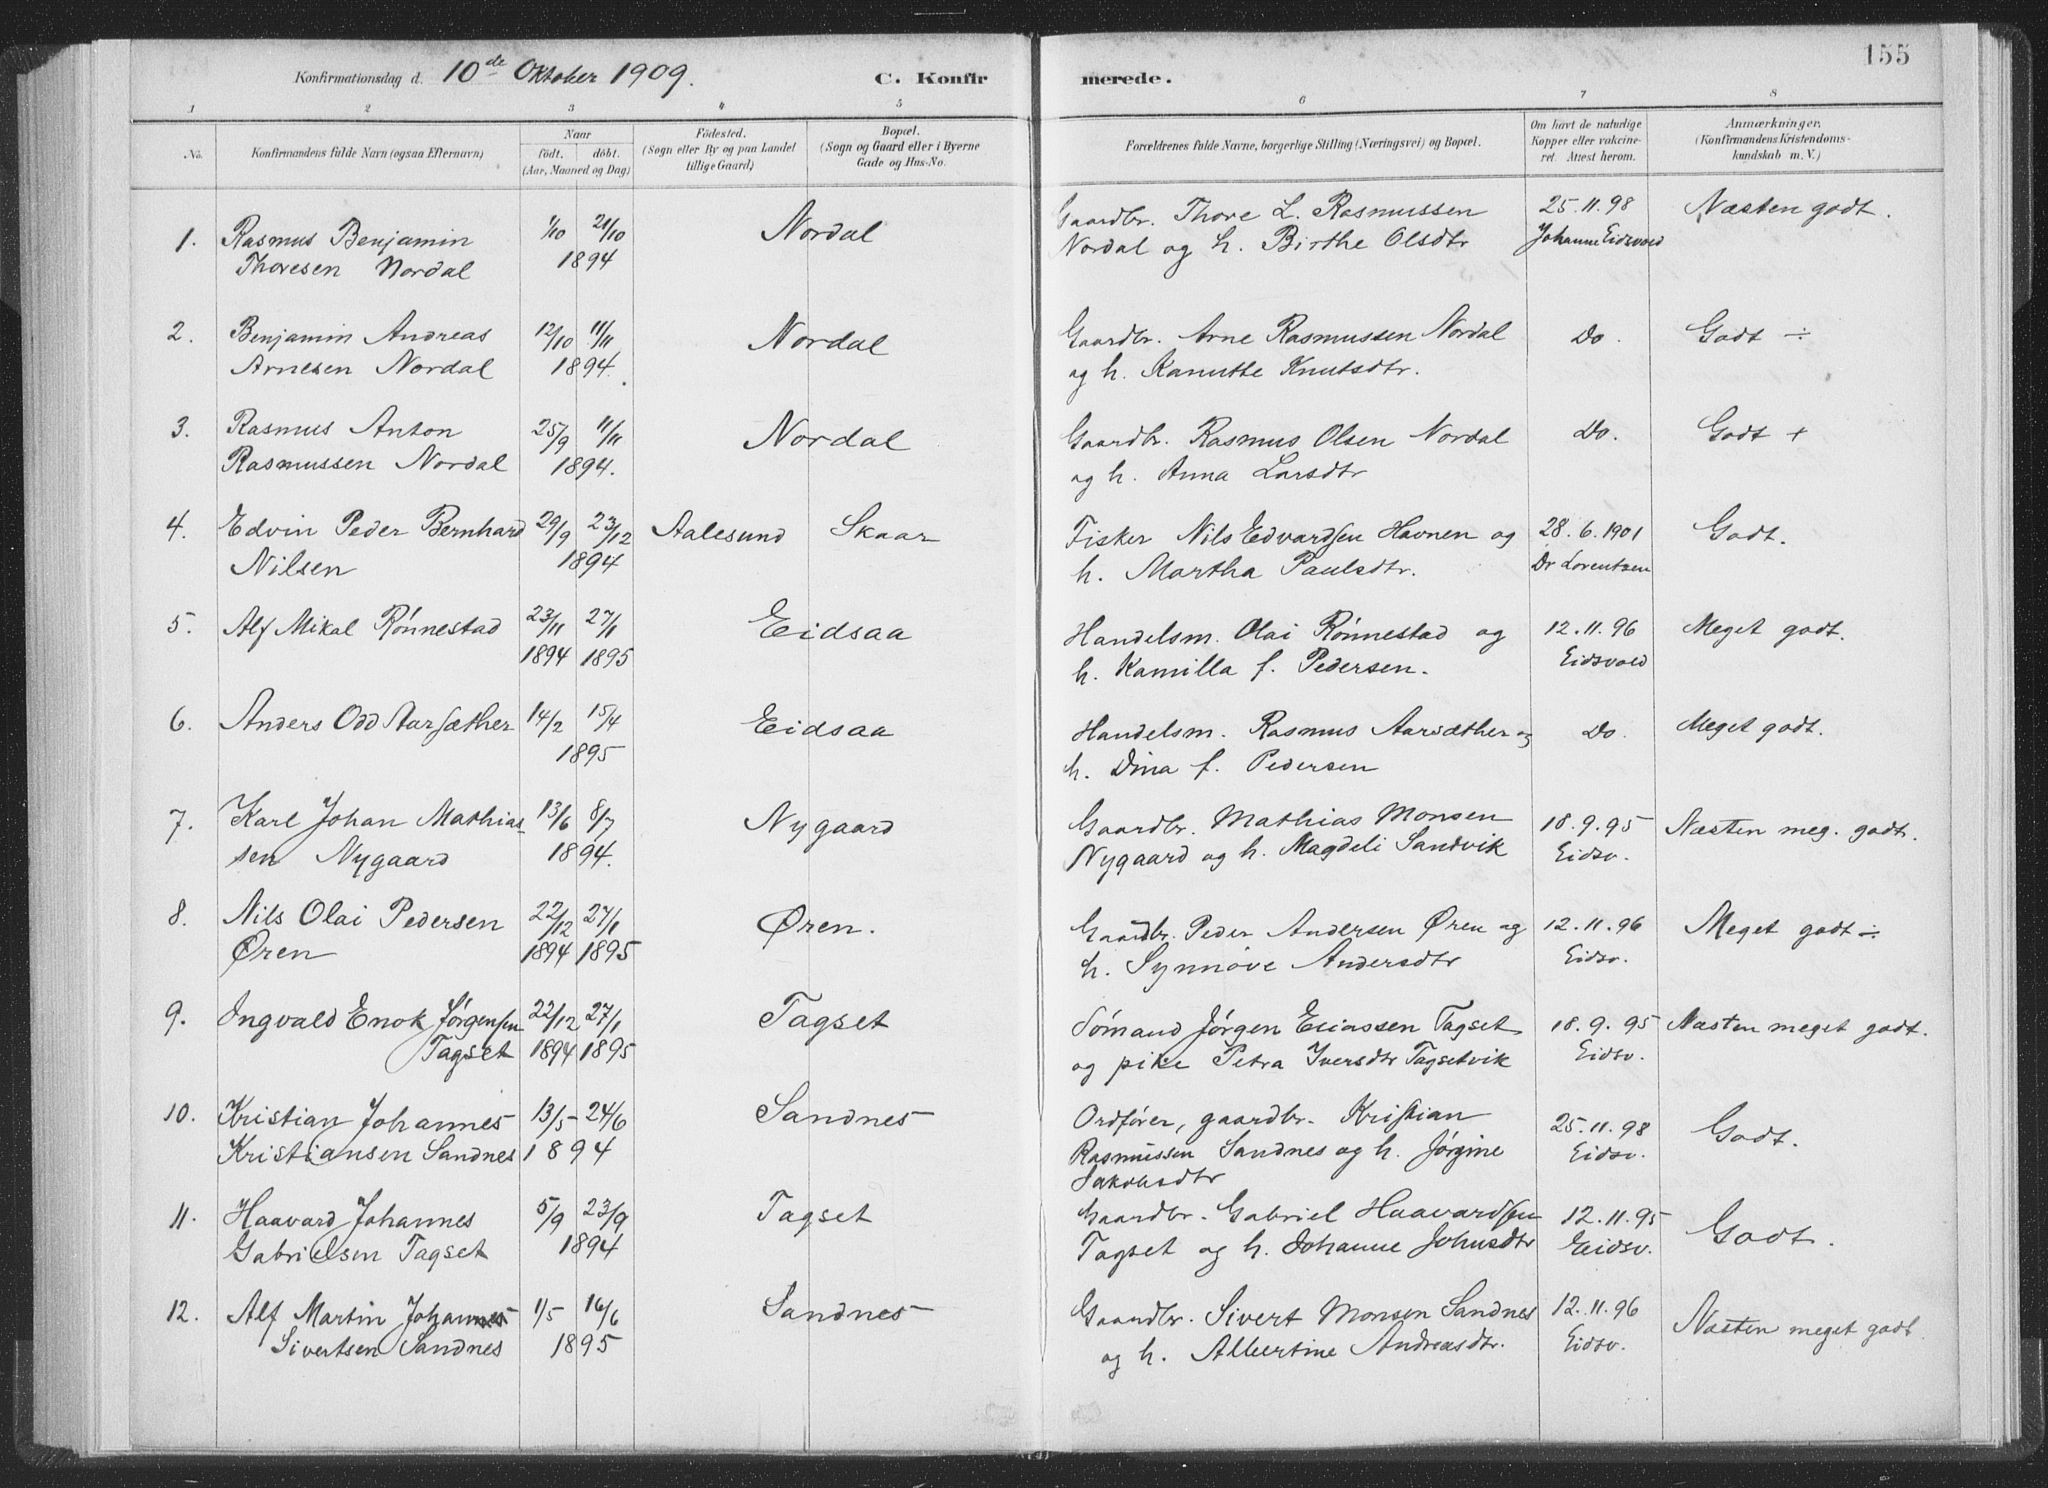 155
Konfirmationsdag d. 10de Oktober 1909.
C. Konfir merede.
1 2 3 4 5 6 7 8
No.
Konfirmandens fulde Navn (ogsaa Efternavn)
Naar
født. døbt.
(Aar, Maaned og Dag)
Fødested.
(Sogn eller By og paa Landet
tillige Gaard)
Bopæl.
(Sogn og Gaard eller i Byerne
Gade og Hus-No.
Forældrenes fulde Navne, borgerlige Stilling (Næringsvei) og Bopæl.
Om havt de naturlige
Kopper eller vakcine-
ret. Attest herom.
Anmærkninger.
(Konfirmandens Kristendoms-
kundskab m. V.)
1. Rasmus Benjamin 1/10 21/10 Nordal Gaardbr. Thore L. Rasmussen 25.11.98 Næsten godt.
Thoresen Nordal 1894 Nordal og h. Birthe Olsdtr Johanne Eidsvold
2. Benjamin Andreas 12/10 11/11 Nordal Gaardbr. Arne Rasmussen Nordal Do. Godt ÷
Arnesen Nordal 1894. og h. Kanutte Knutsdtr.
3. Rasmus Anton 25/9 11/11 Nordal Gaardbr. Rasmus Olsen Nordal Do. Godt +
Rasmussen Nordal 1894. og h. Anna Larsdtr
4. Edvin Peder Bernhard 29/9 23/12 Aalesund Skaar Fisker Nils Edvardsen Havnen og 28.6.1901 Godt.
Nilsen 1894 h. Martha Paulsdtr. Dr Lorentzen
5. Alf Mikal Rønnestad 23/11 27/1 Eidsaa Handelsm. Olai Rønnestad og 12.11.96 Meget godt.
1894 1895 h. Kamilla f. Pedersen. Eidsvold
6. Anders Odd Aarsæther 14/2 15/4 Eidsaa Handelsm. Rasmus Aarsæther og Do. Meget godt.
1895 h. Dina f. Pedersen
7. Karl Johan Mathias- 13/6 8/7 Nygaard Gaardbr. Mathias Monsen 18.9.95 Næsten meg. godt.
sen Nygaard 1894. Nygaard og h. Magdeli Sandvik Eidsv.
8. Nils Olai Pedersen 22/12 27/1 Øren. Gaardbr. Peder Andersen Øren og 12.11.96 Meget godt ÷
Øren 1894 1895 h. Synnøve Andersdtr Eidsv.
9. Ingvald Enok Jørgensen 22/12 27/1 Tagset Sømand Jørgen Eliassen Tagset 18.9.95 Næsten meget godt.
Tagset 1894 1895 og pike Petra Iversdtr Tagsetvik Eidsv.
10. Kristian Johannes 13/5 24/6 Sandnes Ordfører, gaardbr. Kristian 25.11.98 Godt.
Kristiansen Sandnes 1894 Rasmussen Sandnes og h. Jørgine Eidsv.
Jakobsdtr
11. Haavard Johannes 5/9 23/9 Tagset Gaardbr. Gabriel Haavardsen 12.11.95 Godt.
Gabrielsen Tagset 1894 Tagset og h. Johanne Johnsdtr Eidsv.
12. Alf Martin Johannes 1/5 16/6 Sandnes Gaardbr. Sivert Monsen Sandnes 12.11.96 Næsten meget godt
Sivertsen Sandnes 1895 og h. Albertine Andreasdtr. Eidsv.